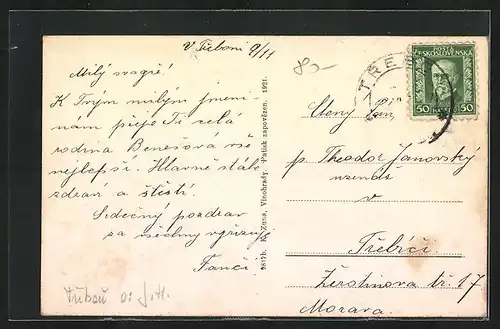 V Třeboni 9/11
85-
Milý svagře!
K Tvým milým jmeni
nám přeje Ti celá
rodina Benešova vše
nejlepší. Hlavně stálé
zdraví a štěstí.
Srdečný pozdrav
za všechny vyřizuje
Fanči
Třeboň
987/b. K. Zuna, Vinohrady. Patisk zapovězen. 1921.
POŠTA
ČESKOSLOVENSKÁ
50 50
TŘEB
Ctěný pan
p. Theodor Janovský
v
Třebíči
Žerotínova tř. 17
Morava.